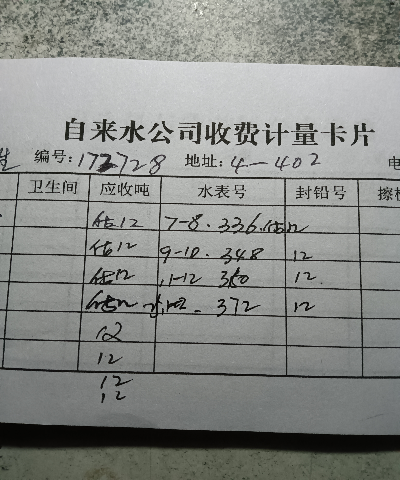 自来水公司收费计量卡片
编号:172728 地址:4-402 电
卫生间 应收吨 水表号 封铅号 擦
估12 7-8. 336. 估12
估12 9-10. 348 12
估12 11-12 360 12.
估12 372 12
12
12
12
12